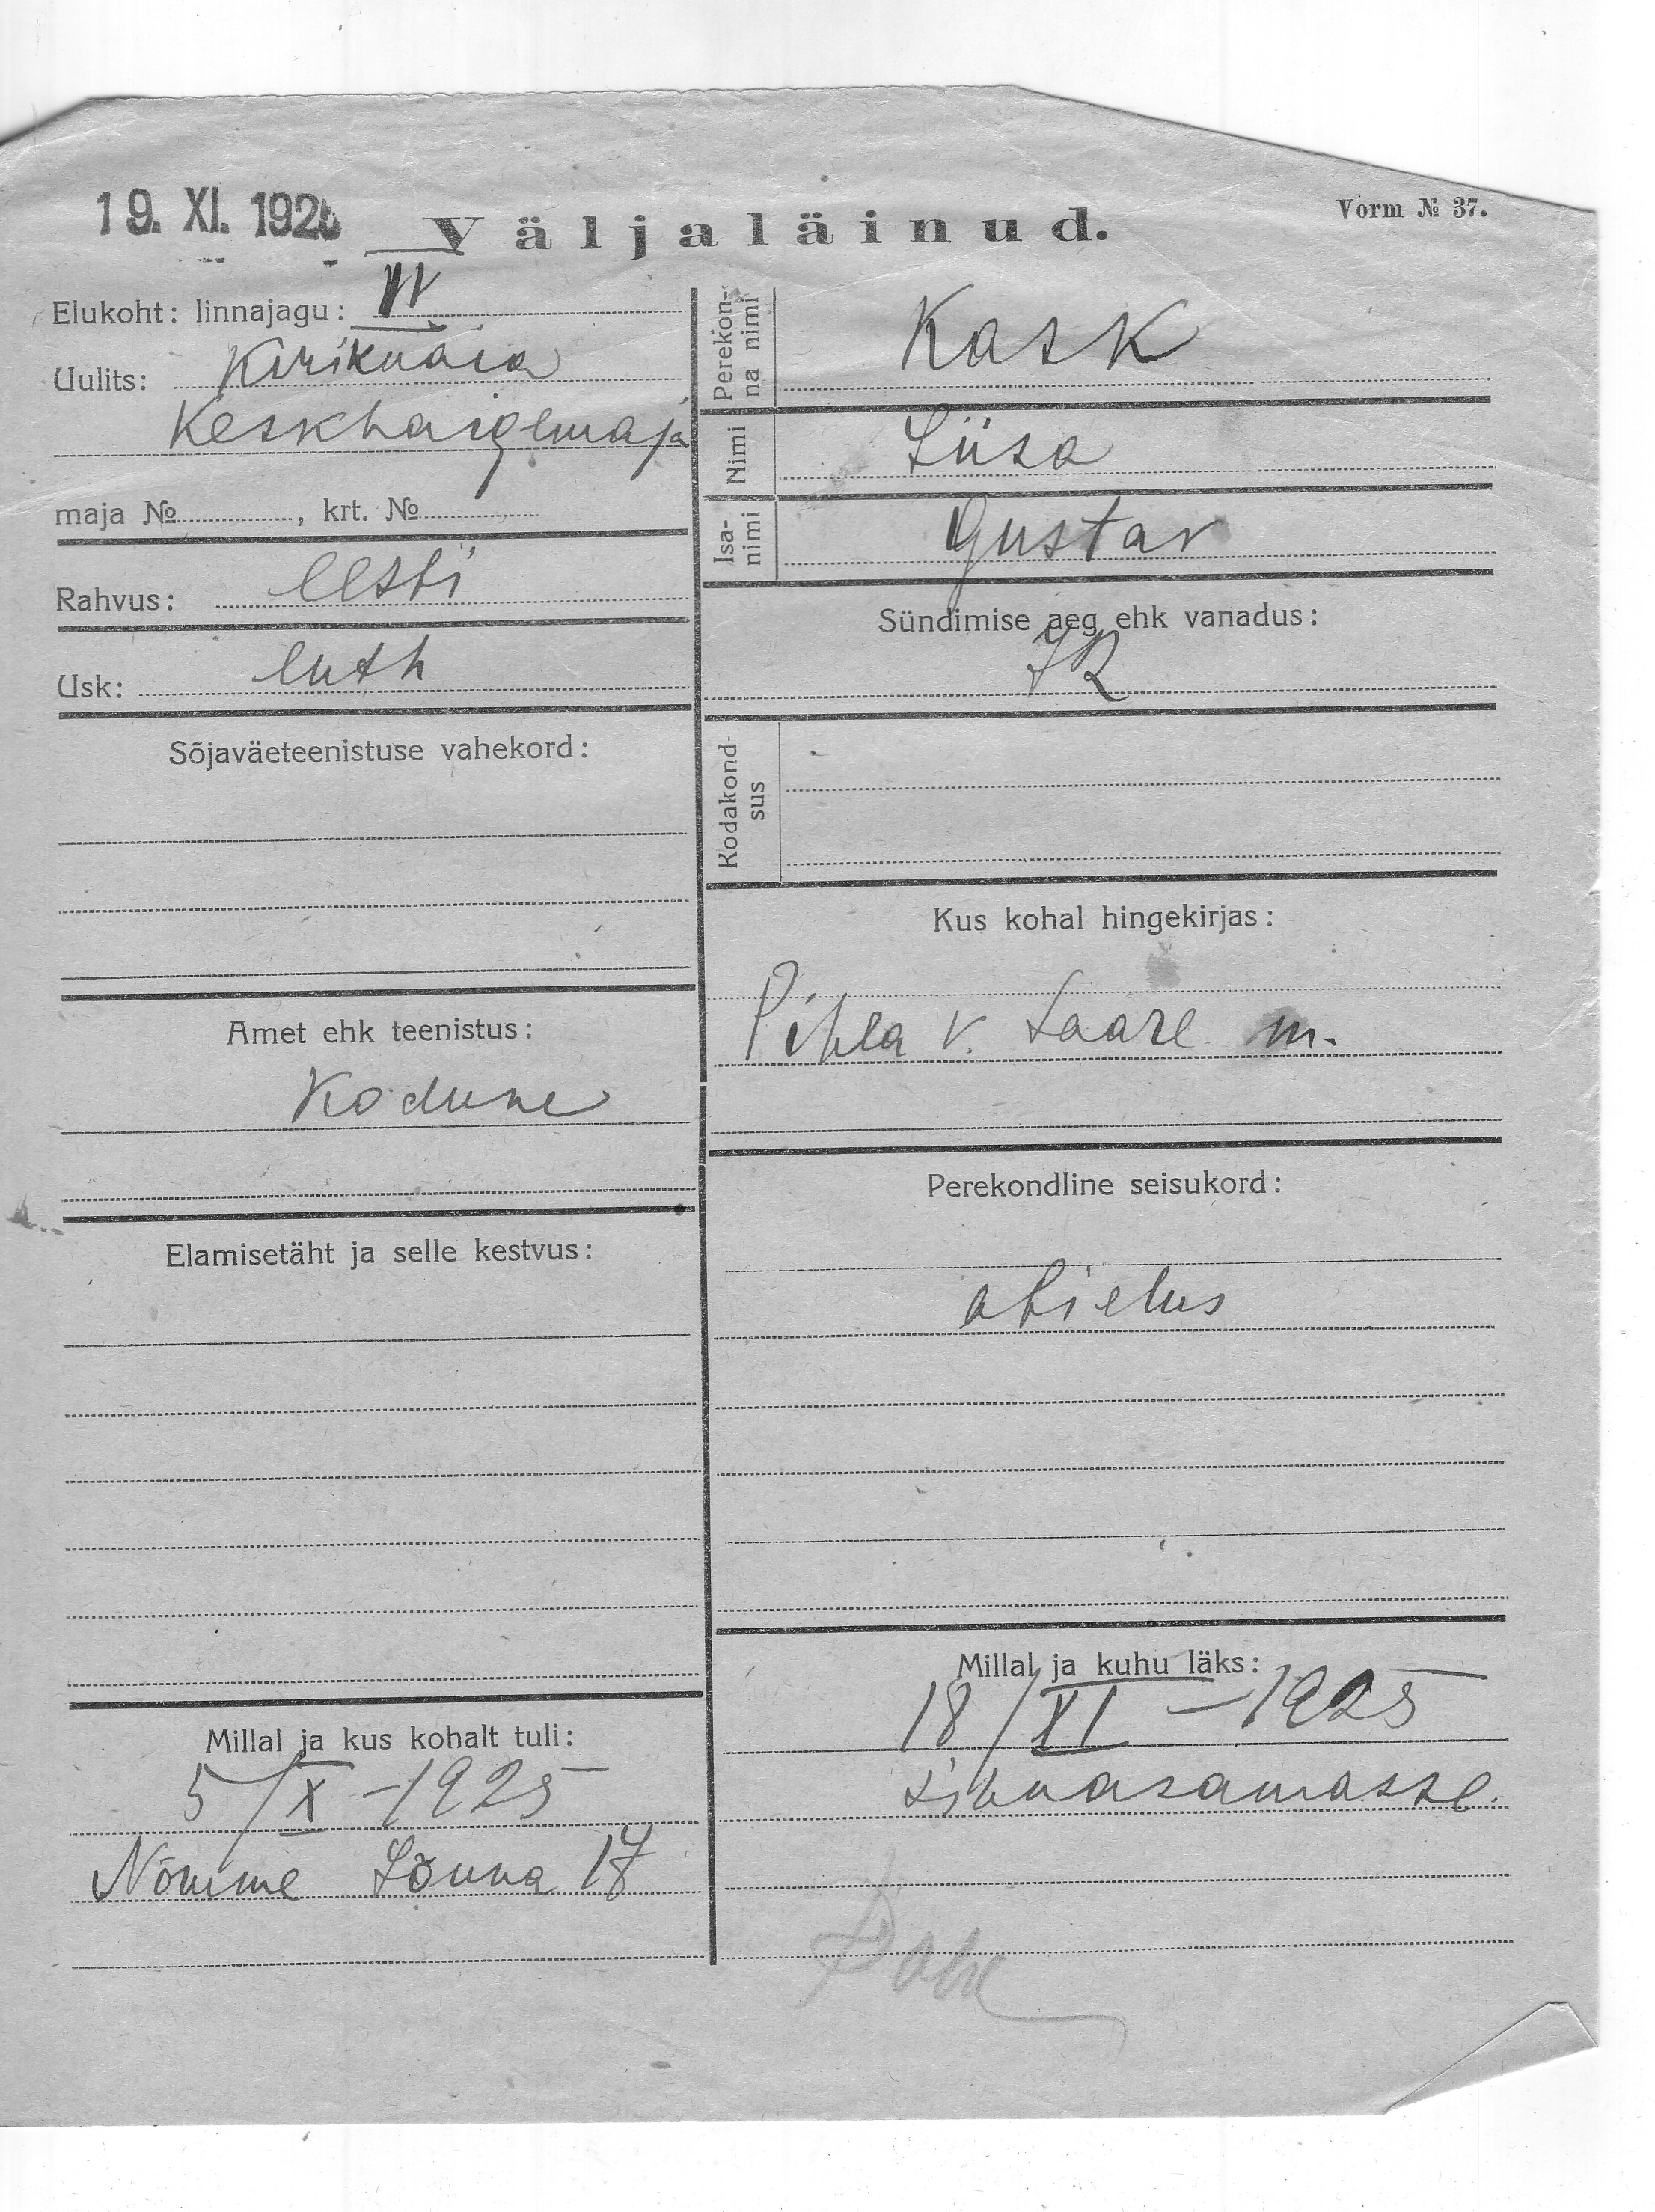 19. XI. 1925
Väljaläinud.
Vorm № 37.
Elukoht: linnajagu: IV
Uulits:
Keskhaigemaja
maja № , krt. №
Rahvus: eesti
Usk: luth
Sõjaväeteenistuse vahekord:
Amet ehk teenistus:
Kodune
Elamisetäht ja selle kestvus:
Millal ja kus kohalt tuli:
5/X - 1925
Nõmme Lõuna 17
Perekon-
na nimi
Kask
Nimi
Liisa
Isa-
nimi
Gustav
Sündimise aeg ehk vanadus:
72
Kodakond-
sus
Kus kohal hingekirjas:
Pihla v. Saare m.
Perekondline seisukord:
abielus
Millal ja kuhu läks:
18/XI - 1925